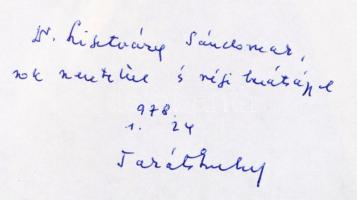 Dr. Lisztváry Sándornak,
sok szeretettel és régi barátsággal
978.
1. 24